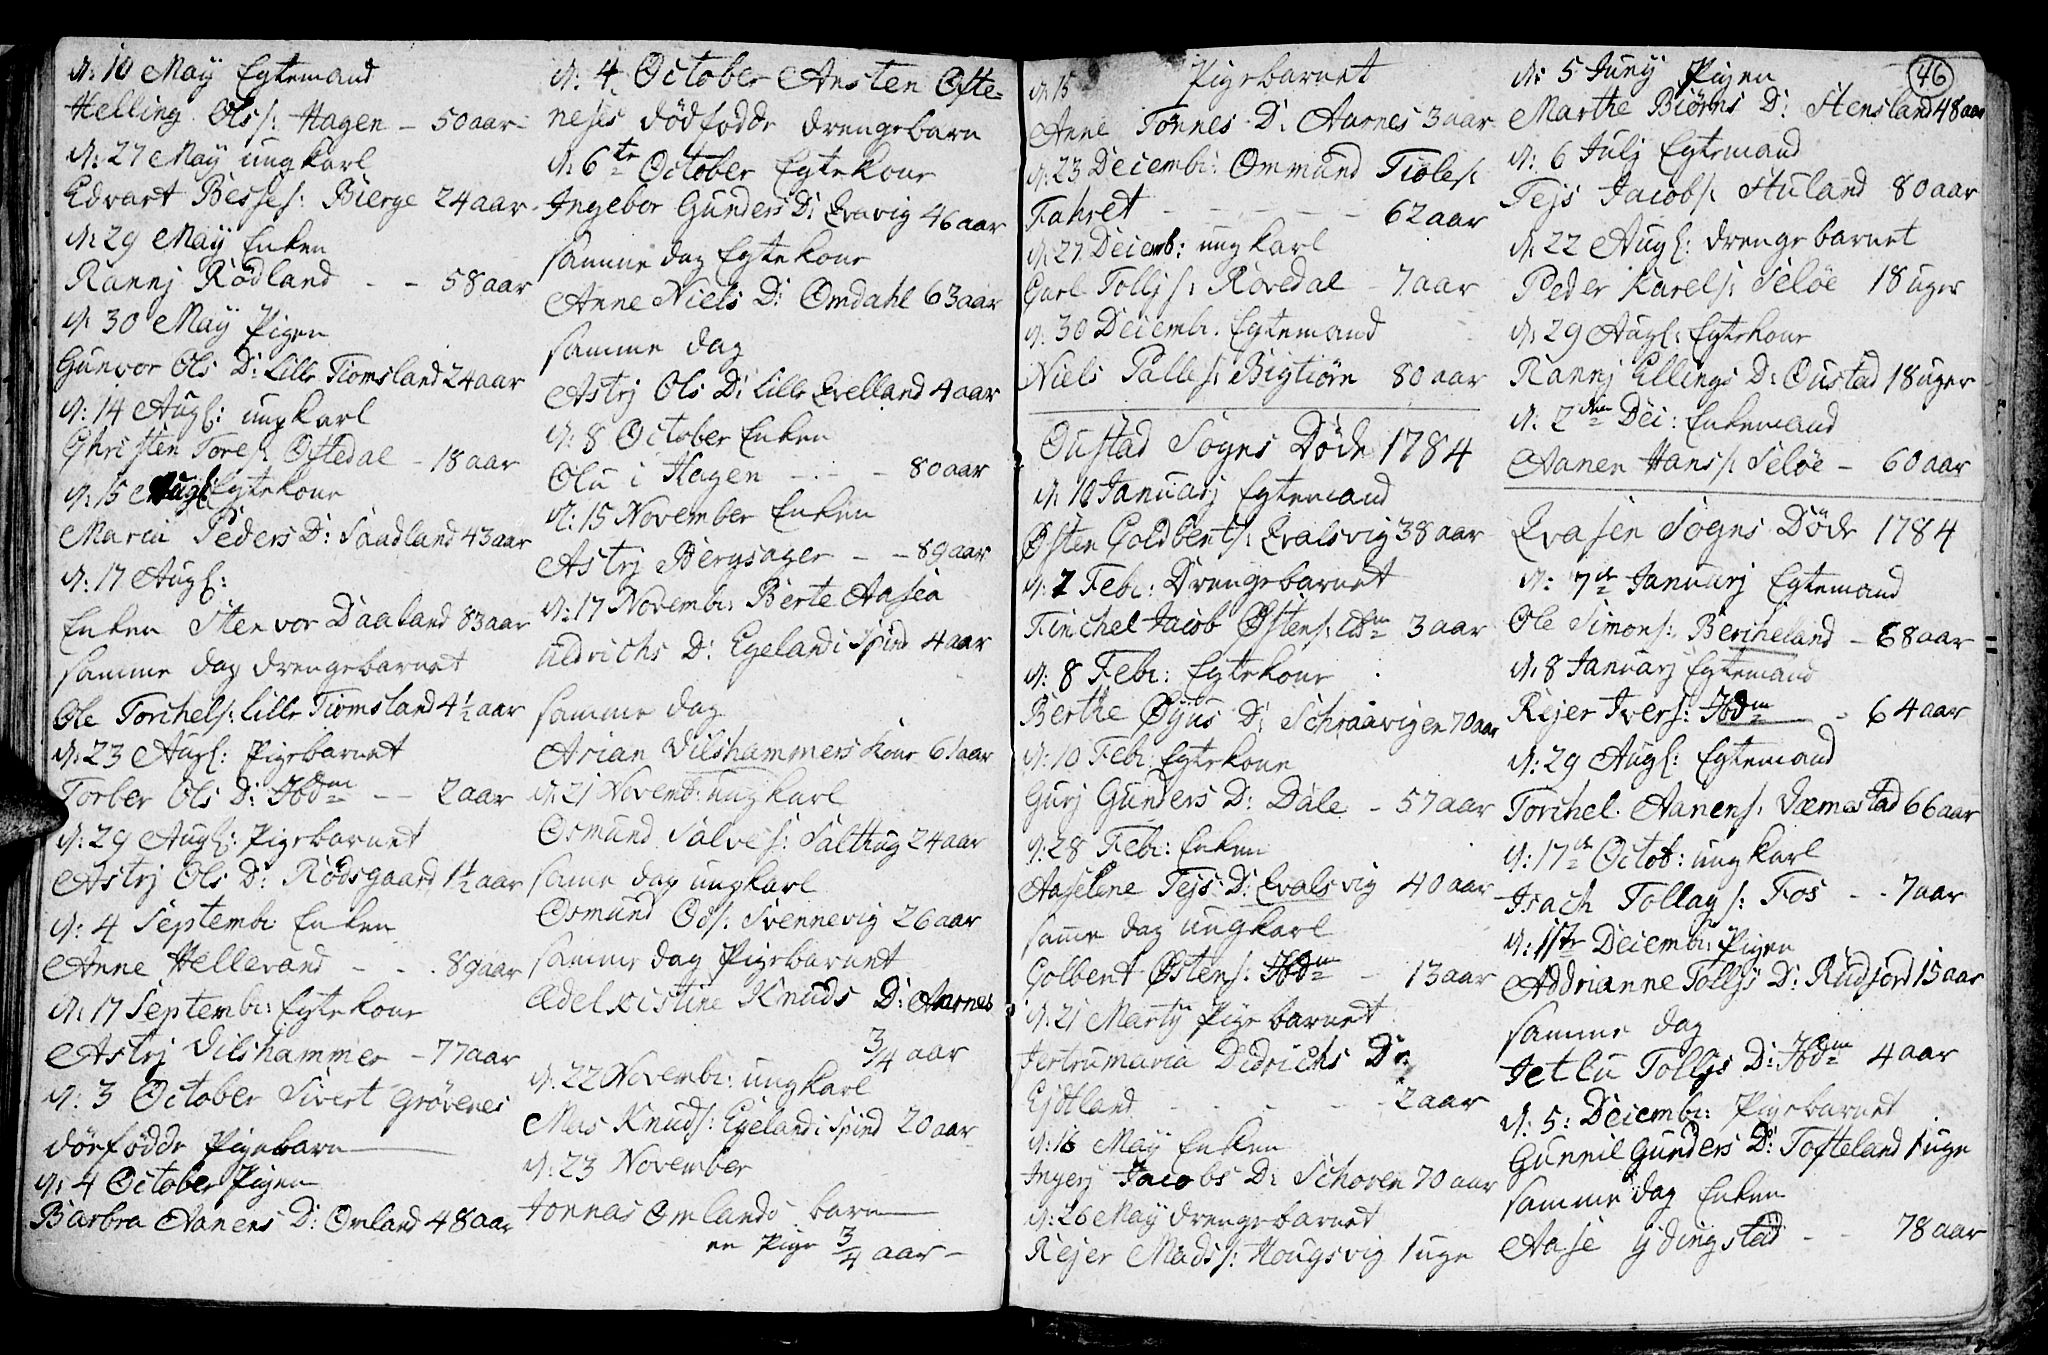 d: 10 May Egtemand
Helling Ols s: Hagen - 50 aar
d: 27 May ungkarl
Edvart Besses: Bierge 24 aar
d: 29 May Enken
Rannj Rödland - - 58 aar
d: 30 May Pigen
Gunvor Ols D: Lille Tiomsland 24 aar
d: 14 Augs: ungkarl
Christen Tores: Oftedal - 18 aar
d: 15 Augs: Egtekone
Maria Peders D: Sandland 43 aar
d: 17 Augs:
Enken Stenvor Daaland 83 aar
samme dag drengebarnet
Ole Torchels: Lille Tiomsland 4½ aar
d: 23 Augs: Pigebarnet
Torber Ols D: Ibdm - - 2 aar
d: 29 Augs: Pigebarnet
Astrj Ols D: Rödsgaard 1½ aar
d: 4 Septemb: Enken
Anne Hellerand - - . 89 aar
d: 17 Septemb: Egtekone
Astrj Vilshammer - 77 aar
d: 3 October Sivert Grövenes
dörfödde Pigebarn
d: 4 October Pigen
Barbra Aanens D: Omland 48 aar
d: 4 October Ansten Ofte-
neses dödfödde drengebarn
d: 6te October Egtekone
Ingebor Gunders D: Qvavig 46 aar
samme dag Egtekone
Anne Niels D: Omdahl 63 aar
samme dag
Astrj Ols D: Lille Qvelland 4 aar
d: 8 October Enken
Olu i Hagen - . - - 80 aar
d: 15 November Enken
Astrj Bergsager - - 89 aar
d: 17 Novemb: Berte Aasea
Uldrichs D: Egeland i Spind 4 aar
samme dag
Arian Vilshammers kone 61 aar
d: 21 Novemb: ungkarl
Osmund Salves: Salthug 24 aar
same dag ungkarl
Osmund Ods: Svennevig 26 aar
samme dag Pigebarnet
Ædel Kistine Knuds D: Aarnes
3/4 aar
d: 22 Novemb: ungkarl
Mas Knuds: Egeland i Spind 20 aar
d: 23 November
Jonnas Omlands barn
en Pige 3/4 aar -
d: 15 Pigebarnet
Anne Tönnes D: Aarnes 3 aar
d: 23 Decemb: Ommund Tioles:
Fahret - - - - - 62 aar
d: 27 Decemb: ungkarl
Carl Tolljs: Rövedal - 7 aar
d: 30 Decemb: Egtemand
Niels Palles: Bigtiörn 80 aar
Oustad Sogns Döde 1784
d: 10 Januarj Egtemand
Østen Goldbents: Qvalsvig 38 aar
d: 2 Feb: Drengebarnet
Finchel Jacob Østens: Ibdm 3 aar
d: 8 Feb: Egtekone
Berthe Øyus D: Schraavigen 70 aar
d: 10 Feb: Egtekone
Gurj Gunders D: Dale - 57 aar
d: 28 Feb: Enken
Aaselene Tejs D: Qvalsvig 40 aar
same dag ungkarl
Golbent Østens: Ibdm - 13 aar
d: 21 Martÿ Pigebarnet
Jertrumaria Didrichs Dr:
Ejdtland - - - - 2 aar
d: 16 May Enken
Ingerj Jacobs D: Schoven 70 aar
d: 26 May drengebarnet
Rejer Mads s: Hougsvig 1 uge
46
d: 5 Junÿ Pigen
Marthe Biörns D: Stensland 48 aar
d: 6 Julj Egtemand
Tejs Jacobs: Stuland 80 aar
d: 22 Augs: drengebarnet
Peder Karels: Selöe 18 uger
d: 29 Augs: Egtekone
Rannj Ellings D: Oustad 18 uger
d: 2den Dec: Enkemand
Aanen Hans s: Selöe - 60 aar
Qvasen Sogns Döde 1784
d: 7de Januarj Egtemand
Ole Simons: Bercheland - 68 aar
d: 8 Januarj Egtemand
Rejer Ivers: Ibdm - 64 aar
d: 29 Augs: Egtemand
Torchel Aanens: Væmestad 66 aar
d: 17de Octob: ungkarl
Isach Tollags: Fos - - 7 aar
d: 1ste Decemb: Pigen
Addrianne Tolljs D: Rudjord 15 aar
samme dag
Jetlu Tolljs D: Ibdm 4 aar
d: 5: Decemb: Pigebarnet
Gunnil Gunders D: Tofteland 1 uge
samme dag Enken
Aase Ydingstad - - 78 aar